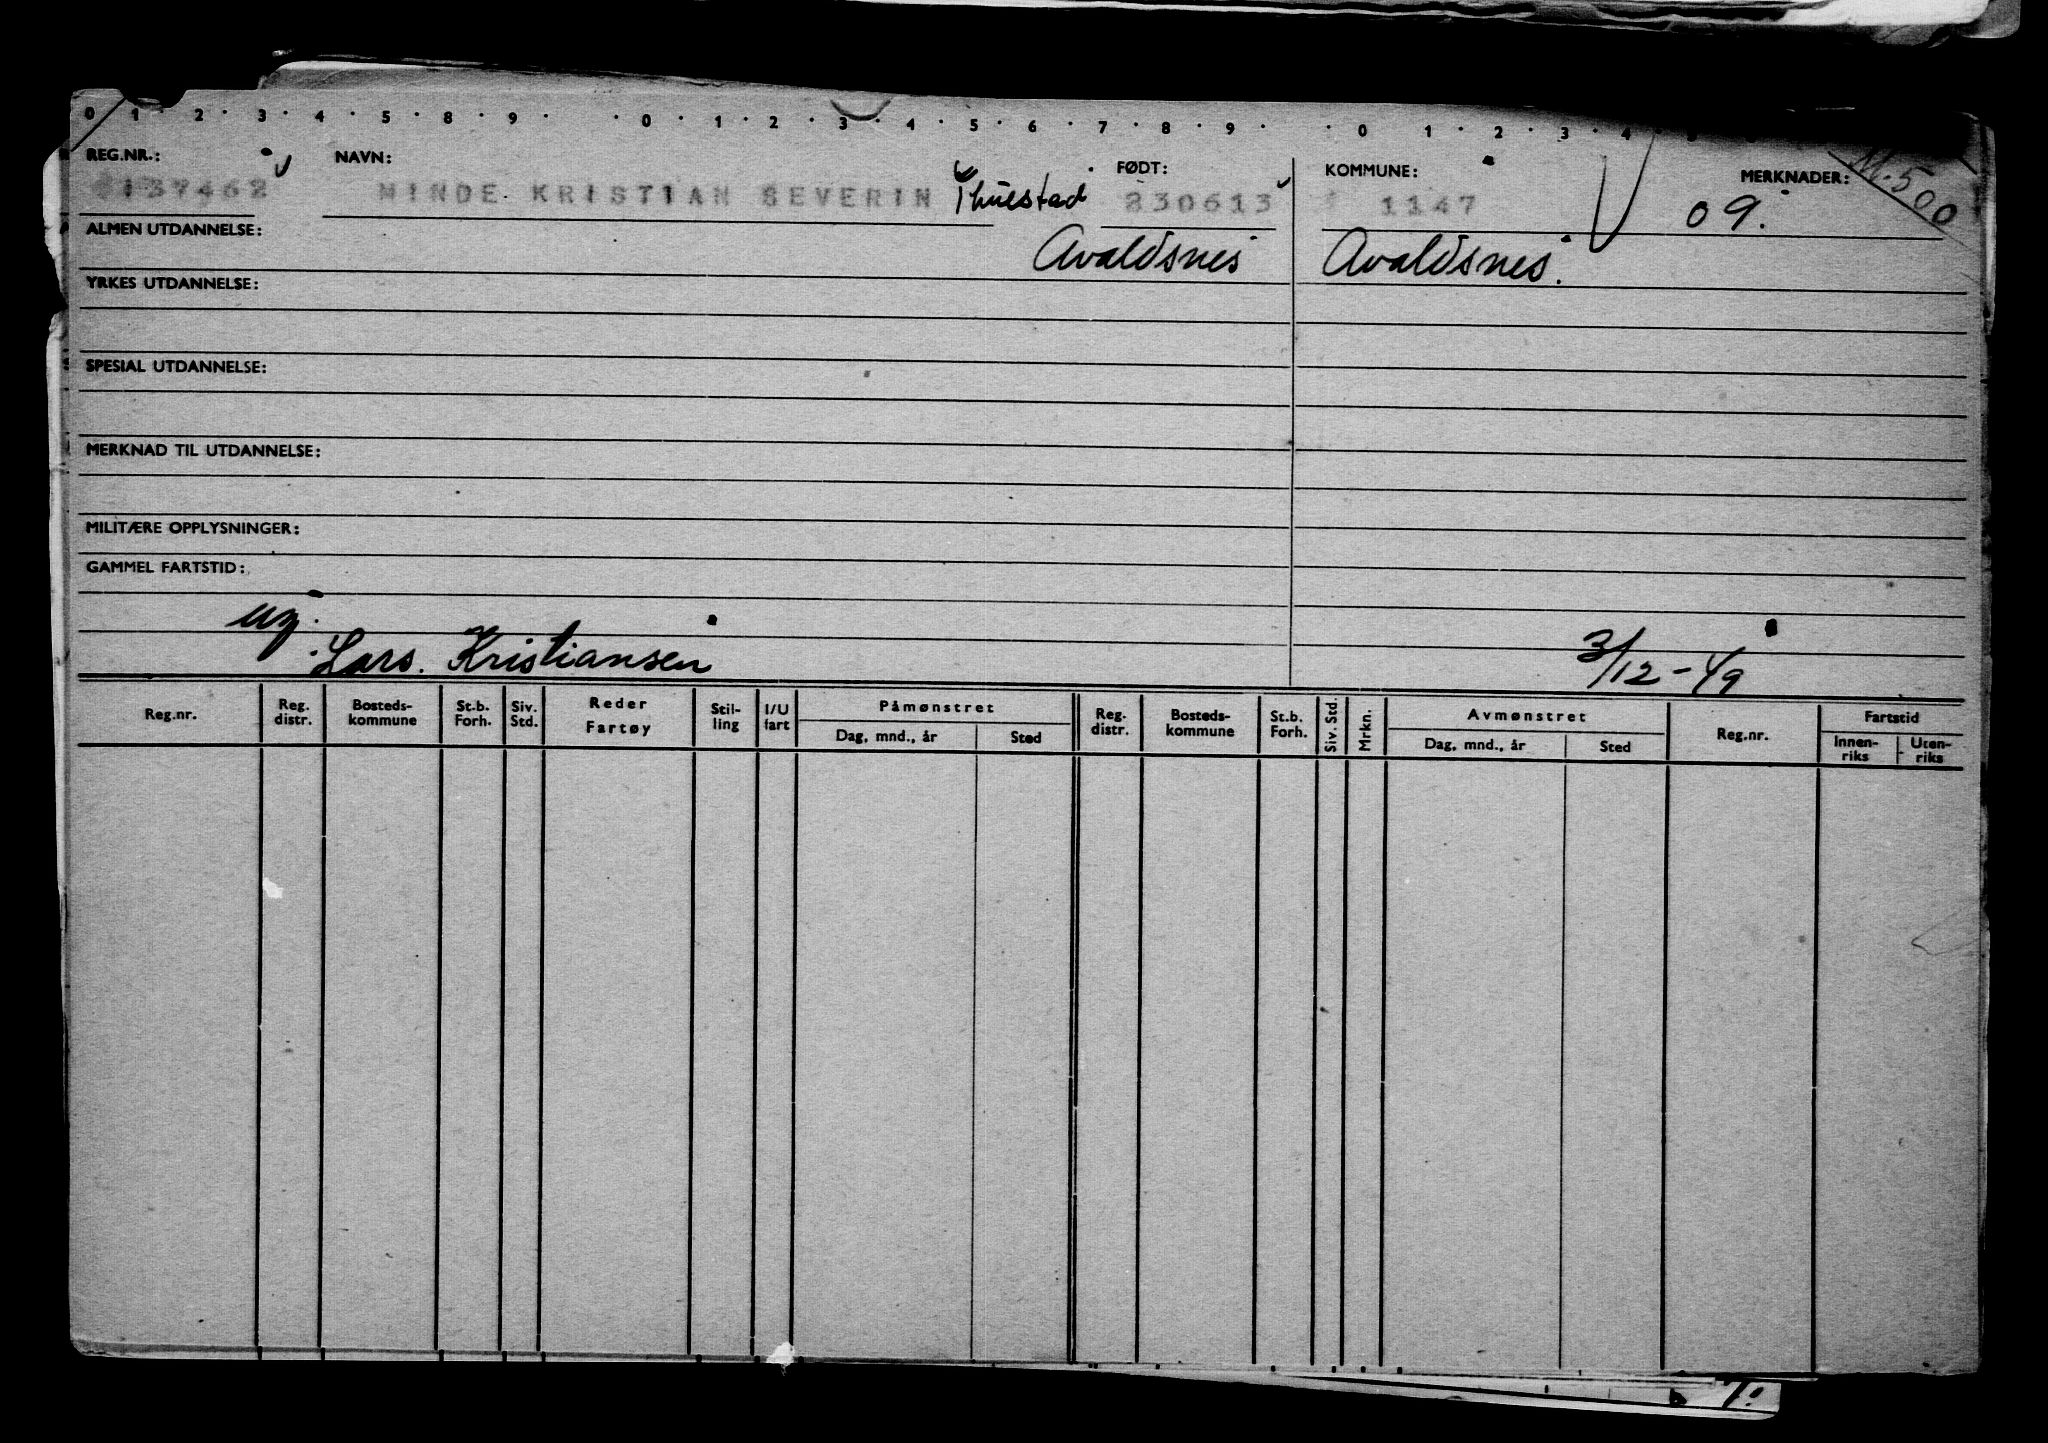 0 1 · 2 · 3 · 4 · 5 · 8 · 9 · · 0 · 1 · 2 · 3 · 4 · 5 · 6 · 7 · 8 · 9 · · 0 1 · 2 · 3 · 4 ·
REG.NR.: NAVN: FØDT: KOMMUNE: MERKNADER: M.500
137462 MINDE KRISTIAN SEVERIN Thuestad 230613 1147 09.
ALMEN UTDANNELSE: Avaldsnes Avaldsnes.
YRKES UTDANNELSE:
SPESIAL UTDANNELSE:
MERKNAD TIL UTDANNELSE:
MILITÆRE OPPLYSNINGER:
GAMMEL FARTSTID:
ug.
Lars. Kristiansen 3/12-49
Reg.nr. Reg. distr. Bosteds-kommune St.b. Forh. Siv. Std. Reder Fartøy Stil-ling I/U fart Påmønstret Dag, mnd., år Sted Reg. distr. Bosteds-kommune St.b. Forh. Siv. Std. Mrkn. Avmønstret Dag, mnd., år Sted Reg.nr. Fartstid Innen-riks Uten-riks